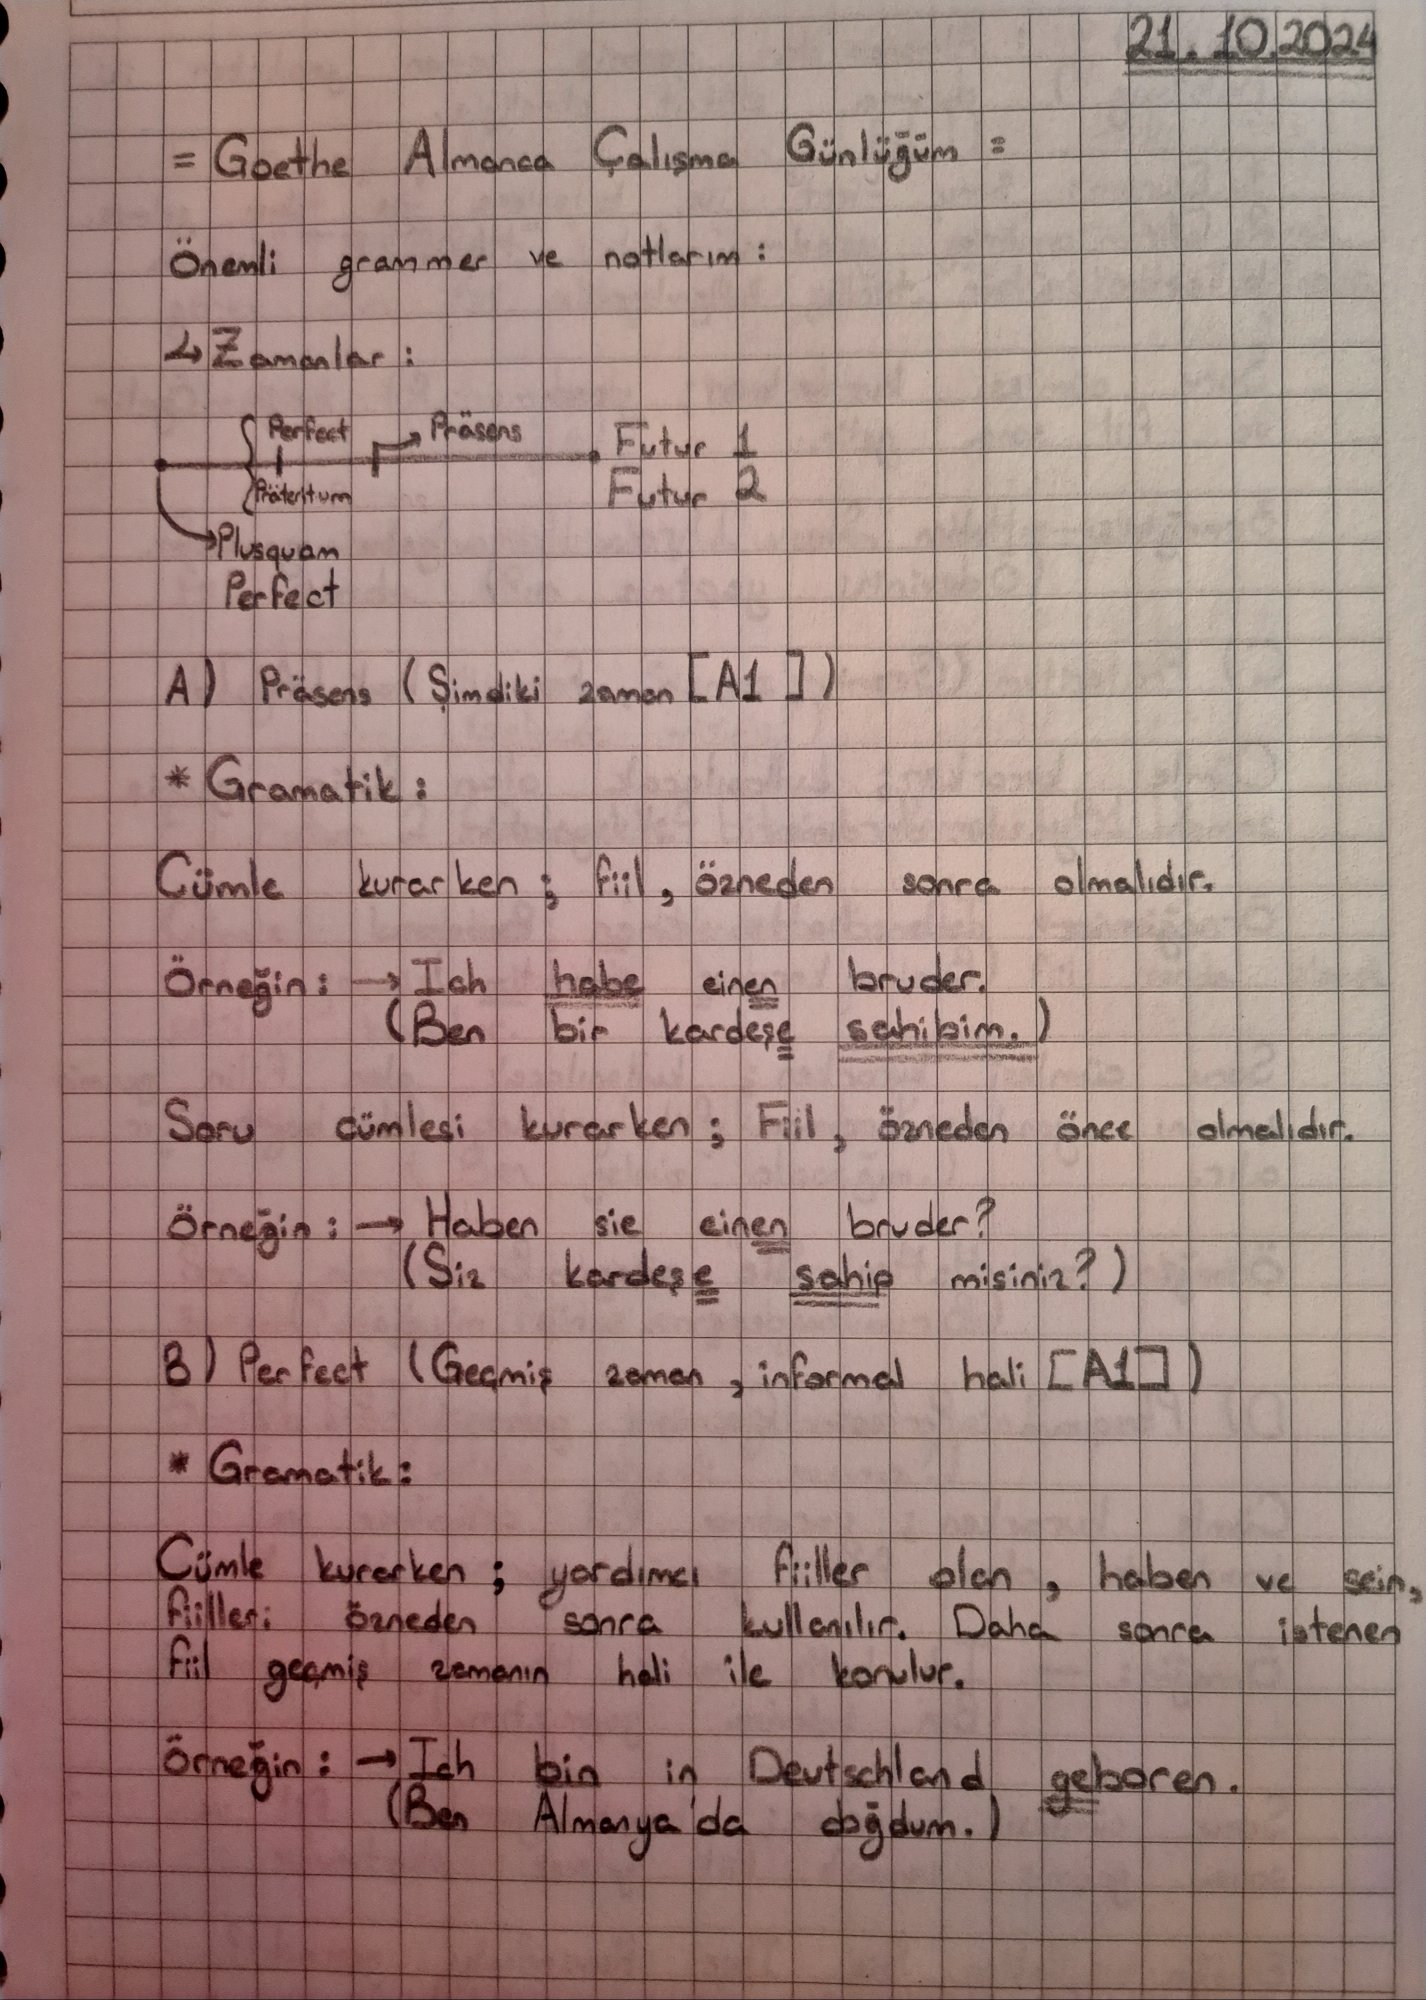 21.10.2024
= Goethe Almanca Çalışma Günlüğüm =
Önemli grammer ve notlarım :
↳ Zamanlar :
Perfect
Präsens
Futur 1
Präteritum
Futur 2
Plusquam
Perfect
A) Präsens (Şimdiki zaman [A1])
* Gramatik :
Cümle kurarken ; fiil, özneden sonra olmalıdır.
Örneğin : → Ich habe einen bruder.
(Ben bir kardeşe sahibim.)
Soru cümlesi kurarken ; Fiil, özneden önce olmalıdır.
Örneğin : → Haben sie einen bruder?
(Siz kardeşe sahip misiniz?)
B) Perfect (Geçmiş zaman, informal hali [A1])
* Gramatik :
Cümle kurarken ; yardımcı fiiller olan, haben ve sein,
fiilleri özneden sonra kullanılır. Daha sonra istenen
fiil geçmiş zamanın hali ile konulur.
Örneğin : → Ich bin in Deutschland geboren.
(Ben Almanya'da doğdum.)